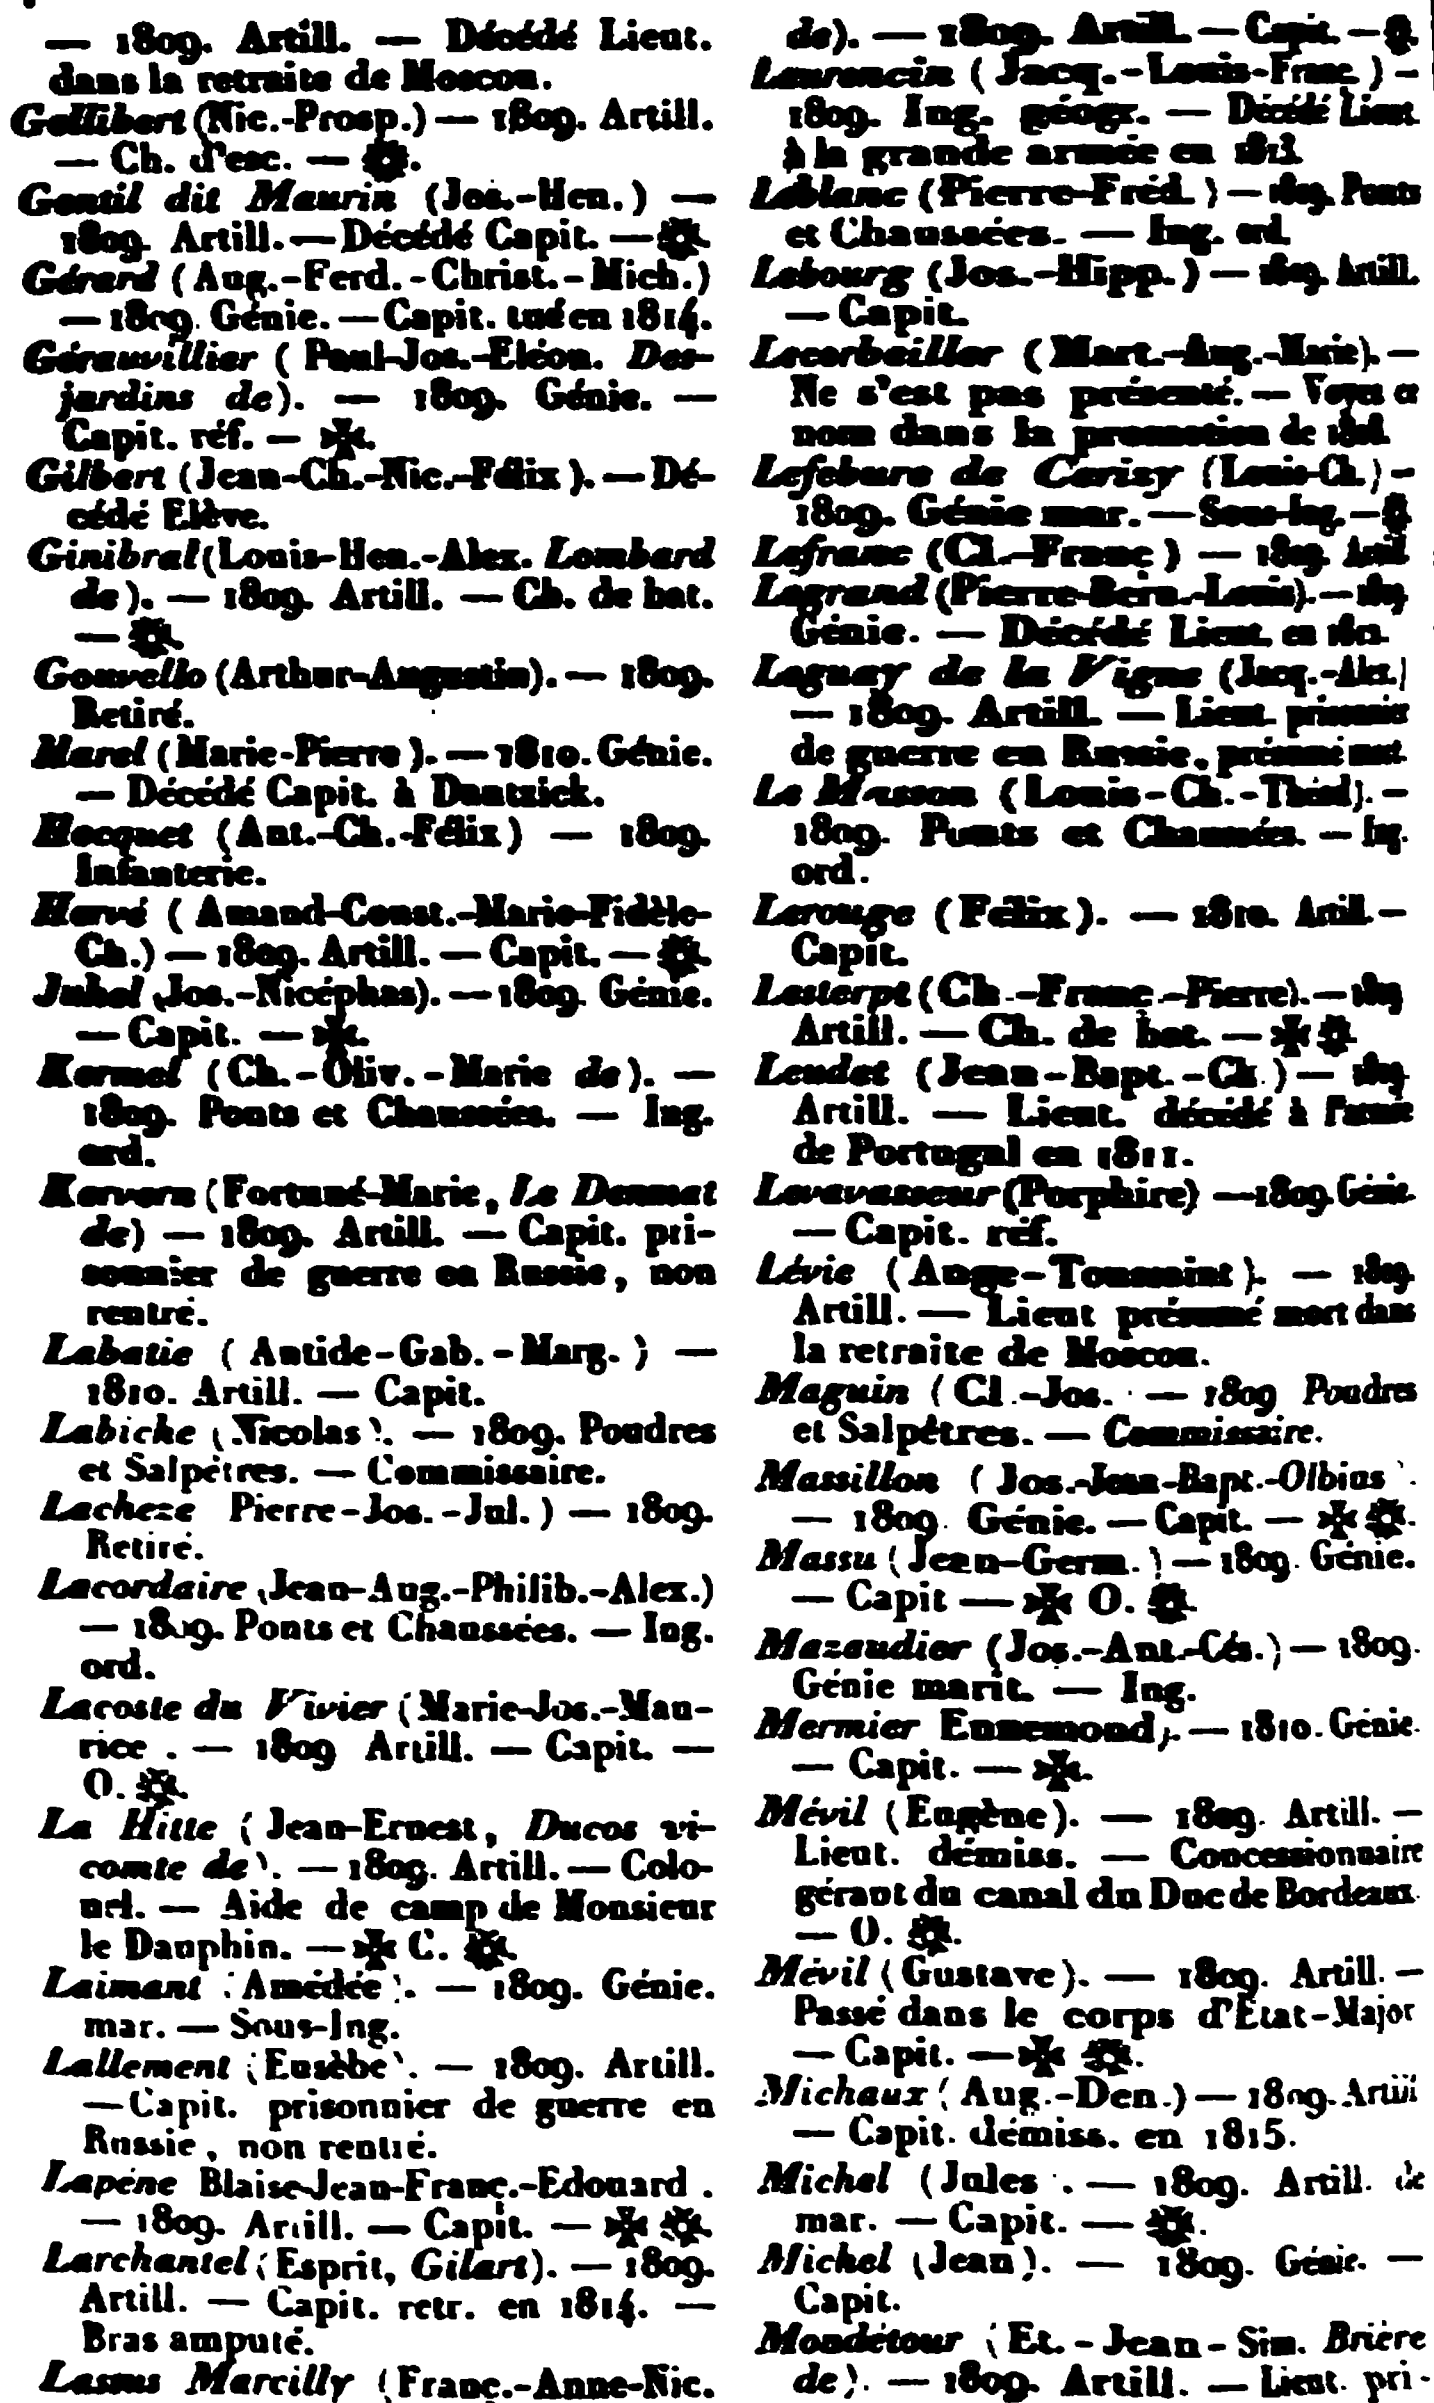 — 1809. Artill. — Décédé Lieut.
dans la retraite de Moscou.
Gellibert (Nic.-Prosp.) — 1809. Artill.
— Ch. d'esc. — ✹.
Gentil dit Maurin (Jos.-Hen.) —
1809. Artill. — Décédé Capit. — ✹.
Gérard (Aug.-Ferd.-Christ.-Mich.)
— 1809. Génie. — Capit. tué en 1814.
Gérauvillier (Paul-Jos.-Eléon. Des-
jardins de). — 1809. Génie. —
Capit. réf. — ✠.
Gilbert (Jean-Ch.-Nic.-Félix). — Dé-
cédé Elève.
Ginibral (Louis-Hen.-Alex. Lombard
de). — 1809. Artill. — Ch. de bat.
— ✹.
Gouvello (Arthur-Augustin). — 1809.
Retiré.
Marel (Marie-Pierre). — 1810. Génie.
— Décédé Capit. à Dantzick.
Hocquet (Ant.-Ch.-Félix) — 1809.
Infanterie.
Hervé (Amand-Const.-Marie-Fidèle-
Ch.) — 1809. Artill. — Capit. — ✹.
Juhel (Jos.-Nicéphas). — 1809. Génie.
— Capit. — ✠.
Kermel (Ch.-Oliv.-Marie de). —
1809. Ponts et Chaussées. — Ing.
ord.
Kervern (Fortuné-Marie, Le Denmat
de) — 1809. Artill. — Capit. pri-
sonnier de guerre en Russie, non
rentré.
Labatie (Antide-Gab.-Marg.) —
1810. Artill. — Capit.
Labiche (Nicolas). — 1809. Poudres
et Salpètres. — Commissaire.
Lacheze Pierre-Jos.-Jul.) — 1809.
Retiré.
Lacordaire (Jean-Aug.-Philib.-Alex.)
— 1809. Ponts et Chaussées. — Ing.
ord.
Lacoste du Vivier (Marie-Jos.-Mau-
rice . — 1809 Artill. — Capit. —
O. ✹.
La Hitte (Jean-Ernest, Ducos vi-
comte de). — 1809. Artill. — Colo-
nel. — Aide de camp de Monsieur
le Dauphin. — ✠ C. ✹.
Laimant (Amédée). — 1809. Génie.
mar. — Sous-Ing.
Lallement (Eusèbe). — 1809. Artill.
— Capit. prisonnier de guerre en
Russie, non rentré.
Lapène Blaise-Jean-Franç.-Edouard .
— 1809. Artill. — Capit. — ✠ ✹.
Larchantel (Esprit, Gilart). — 1809.
Artill. — Capit. retr. en 1814. —
Bras amputé.
Lasnus Marcilly (Franç.-Anne-Nic.
de). — 1809. Artill. — Capit. — ✹.
Laurencin (Jacq.-Louis-Franç.) —
1809. Ing. géogr. — Décédé Lieut.
à la grande armée en 1813.
Leblanc (Pierre-Fréd.) — 1809. Ponts
et Chaussées. — Ing. ord.
Lebourg (Jos.-Hipp.) — 1809. Artill.
— Capit.
Lecorbeiller (Mart.-Aug.-Marie). —
Ne s'est pas présenté. — Voyez ce
nom dans la promotion de
Lefebure de Cerizy (Louis-Ch.) —
1809. Génie mar. — Sous-Ing. — ✹.
Lefranc (Cl.-Franç.) — 1809. Artill.
Legrand (Pierre-Bern.-Louis). — 1809
Génie. — Décédé Lieut. en
Leguay de la Vigne (Jacq.-Alex.)
— 1809. Artill. — Lieut. prisonnier
de guerre en Russie, présumé mort.
Le Masson (Louis-Ch.-Théod). —
1809. Ponts et Chaussées. — Ing.
ord.
Lerouge (Félix). — 1810. Artill. —
Capit.
Lesterpt (Ch.-Franç.-Pierre). — 1809
Artill. — Ch. de bat. — ✠ ✹.
Leudet (Jean-Bapt.-Ch.) — 1809.
Artill. — Lieut. décédé à l'armée
de Portugal en 1811.
Levavasseur (Porphire) — 1809. Génie.
— Capit. réf.
Lévie (Ange-Toussaint). — 1809.
Artill. — Lieut présumé mort dans
la retraite de Moscou.
Maguin (Cl.-Jos. — 1809 Poudres
et Salpêtres. — Commissaire.
Massillon (Jos.-Jean-Bapt.-Olbius).
— 1809. Génie. — Capit. — ✠ ✹.
Massu (Jean-Germ.) — 1809. Génie.
— Capit — ✠ O. ✹.
Mazaudier (Jos.-Ant.-Cés.) — 1809.
Génie marit. — Ing.
Mermier Ennemond). — 1810. Génie.
— Capit. — ✠.
Mévil (Eugène). — 1809. Artill. —
Lieut. démiss. — Concessionnaire
gérant du canal du Duc de Bordeaux.
— O. ✹.
Mévil (Gustave). — 1809. Artill. —
Passé dans le corps d'Etat-Major
— Capit. — ✠ ✹.
Michaux (Aug.-Den.) — 1809. Artill
— Capit. démiss. en 1815.
Michel (Jules . — 1809. Artill. de
mar. — Capit. — ✹.
Michel (Jean). — 1809. Génie. —
Capit.
Mondétour (Et.-Jean-Sim. Brière
de). — 1809. Artill. — Lieut. pri-